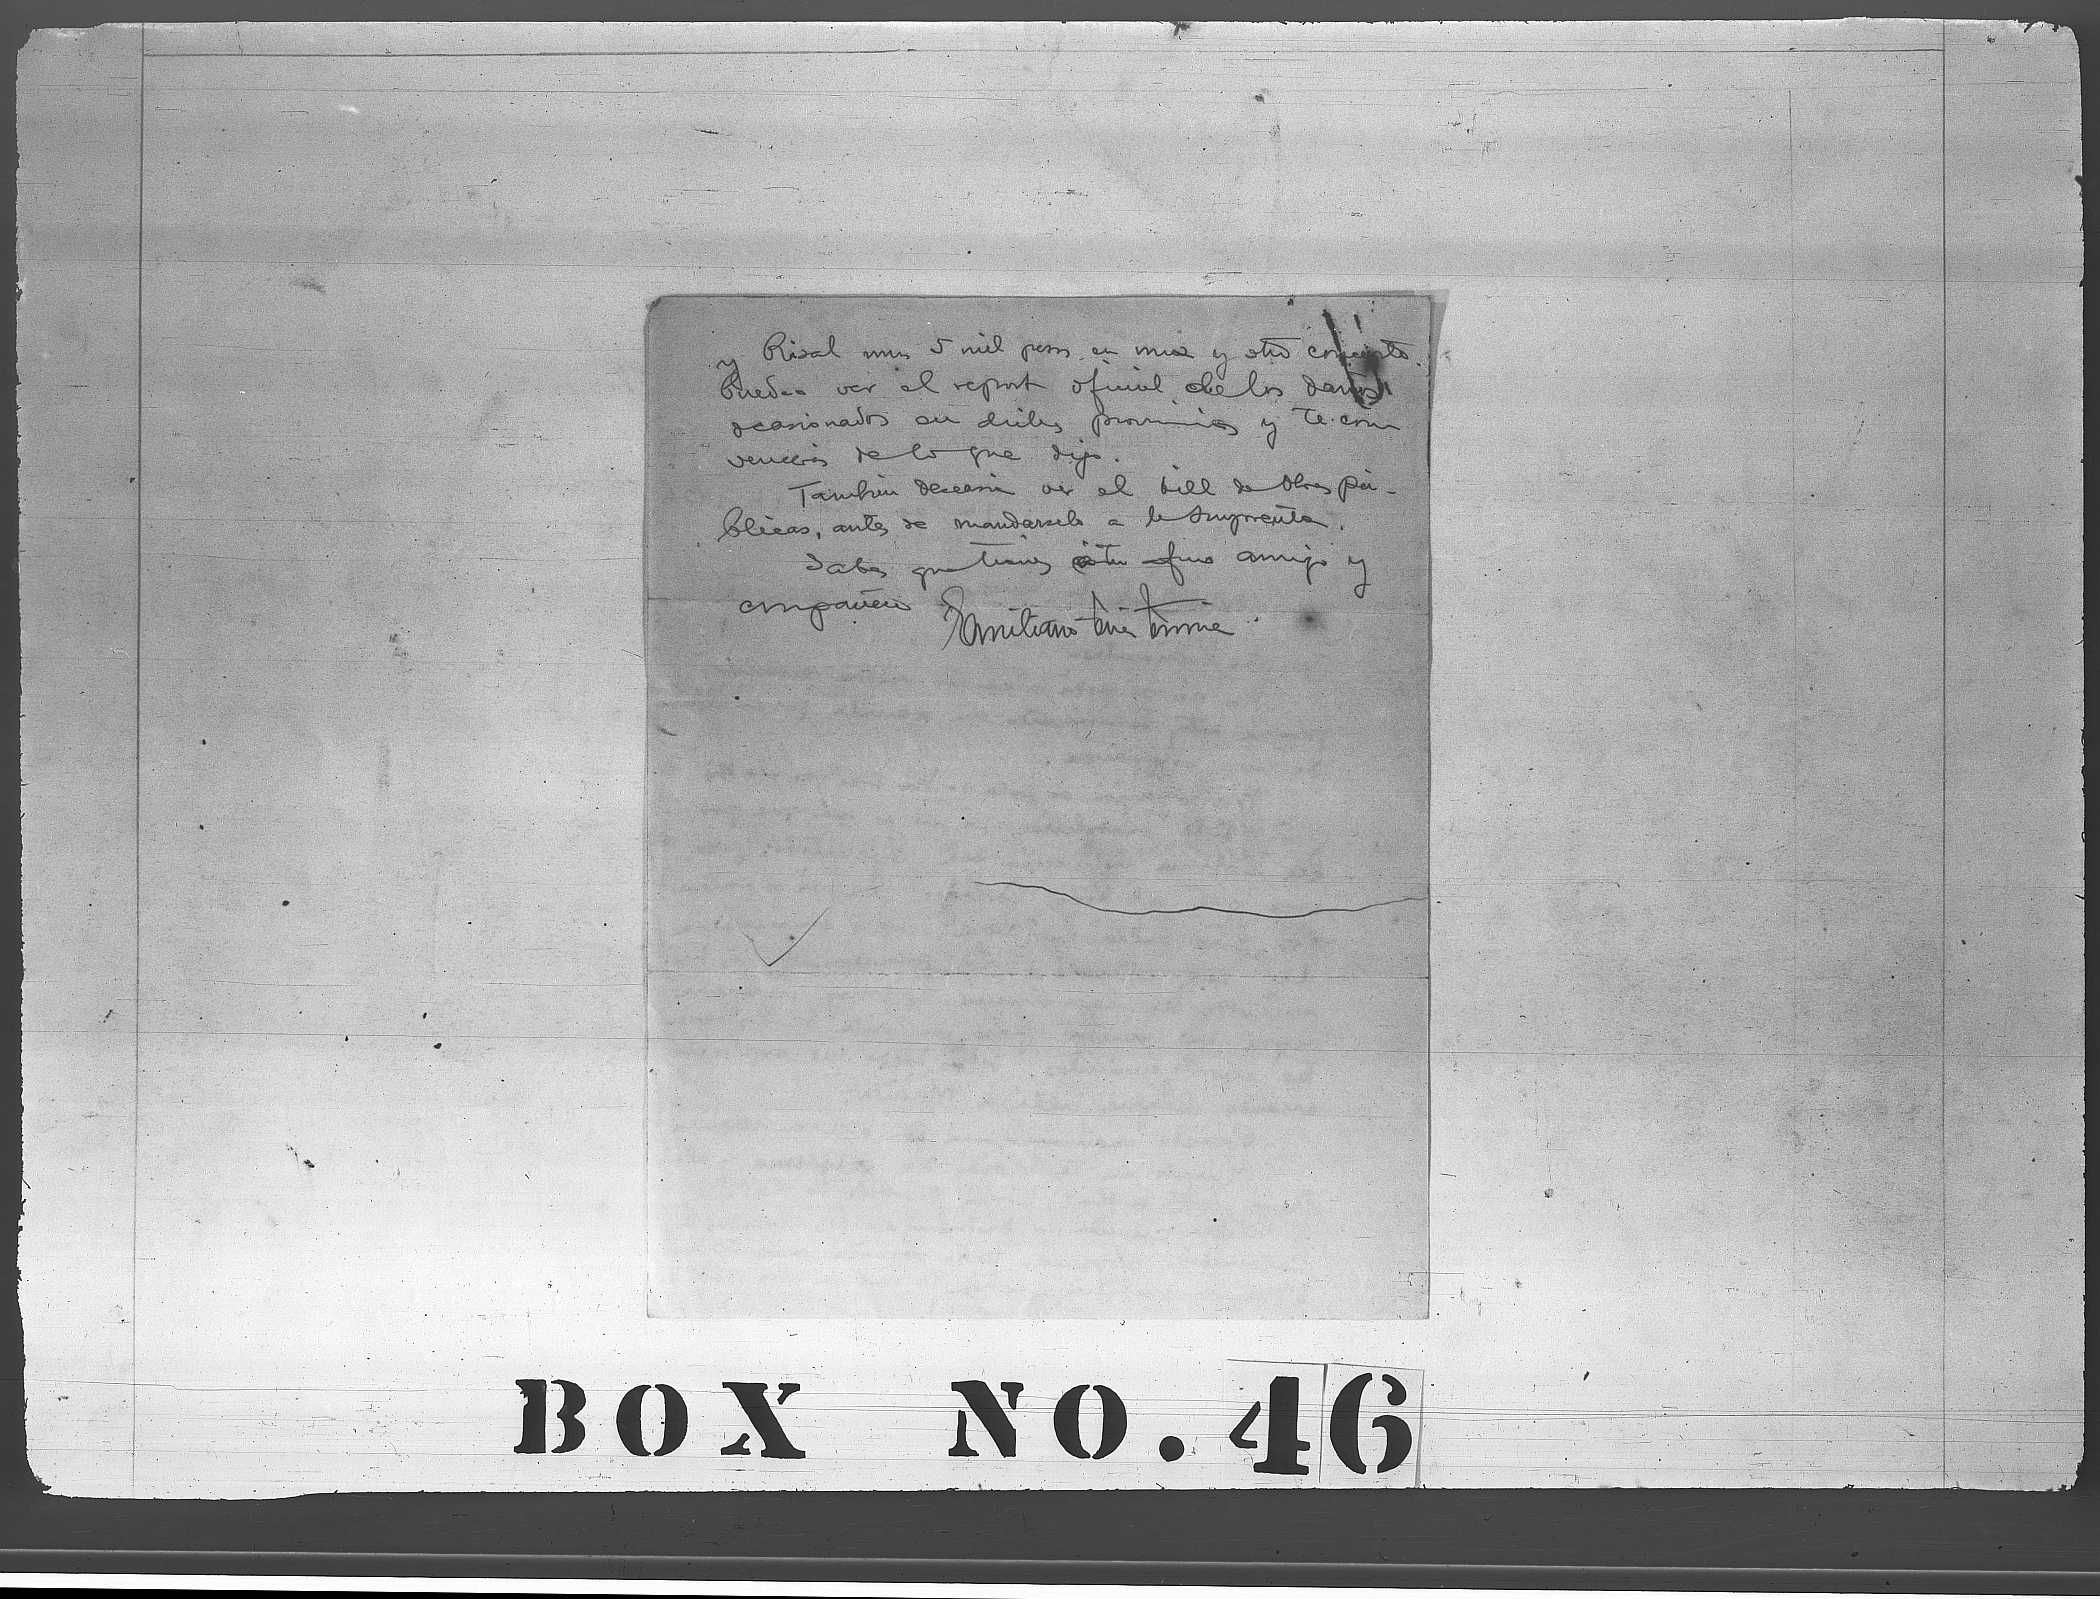 y Rizal unos 5 mil pesos en uno y otro concepto.
Puedes ver el report oficial de los daños
ocasionados en dichas provincias y te con
vencerás de lo que digo.
También desearia ver el bill de Obras pú-
blicas, antes de mandarselo a la Imprenta.
Sabes que tienes amigo y
compañero Emiliano Tria Tirona
BOX NO. 46